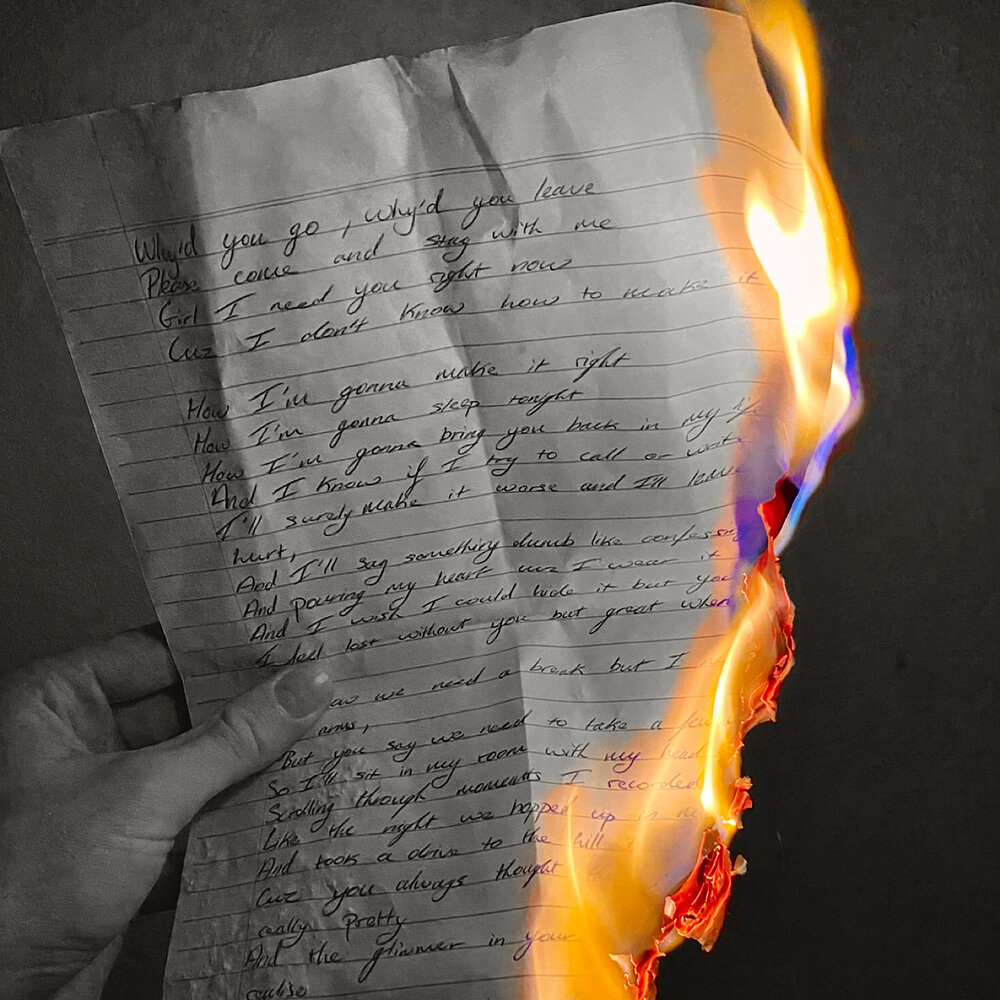 Why'd you go, why'd you leave
Please come and stay with me
Girl I need you right now
Cuz I don't know how to make it
How I'm gonna make it right
How I'm gonna sleep tonight
How I'm gonna bring you back in my life
And I know if I try to call or write
I'll surely make it worse and I'll leave
hurt,
And I'll say something dumb like confessing
And pouring my heart cuz I wear it
And I wish I could hide it but you
I feel lost without you but great when
we need a break but I
arms,
But you say we need to take a few
So I'll sit in my room with my head
Scrolling through moments I recorded
Like the night we hopped up in
And took a drive to the hill
Cuz you always thought
really pretty
And the glimmer in your
realise